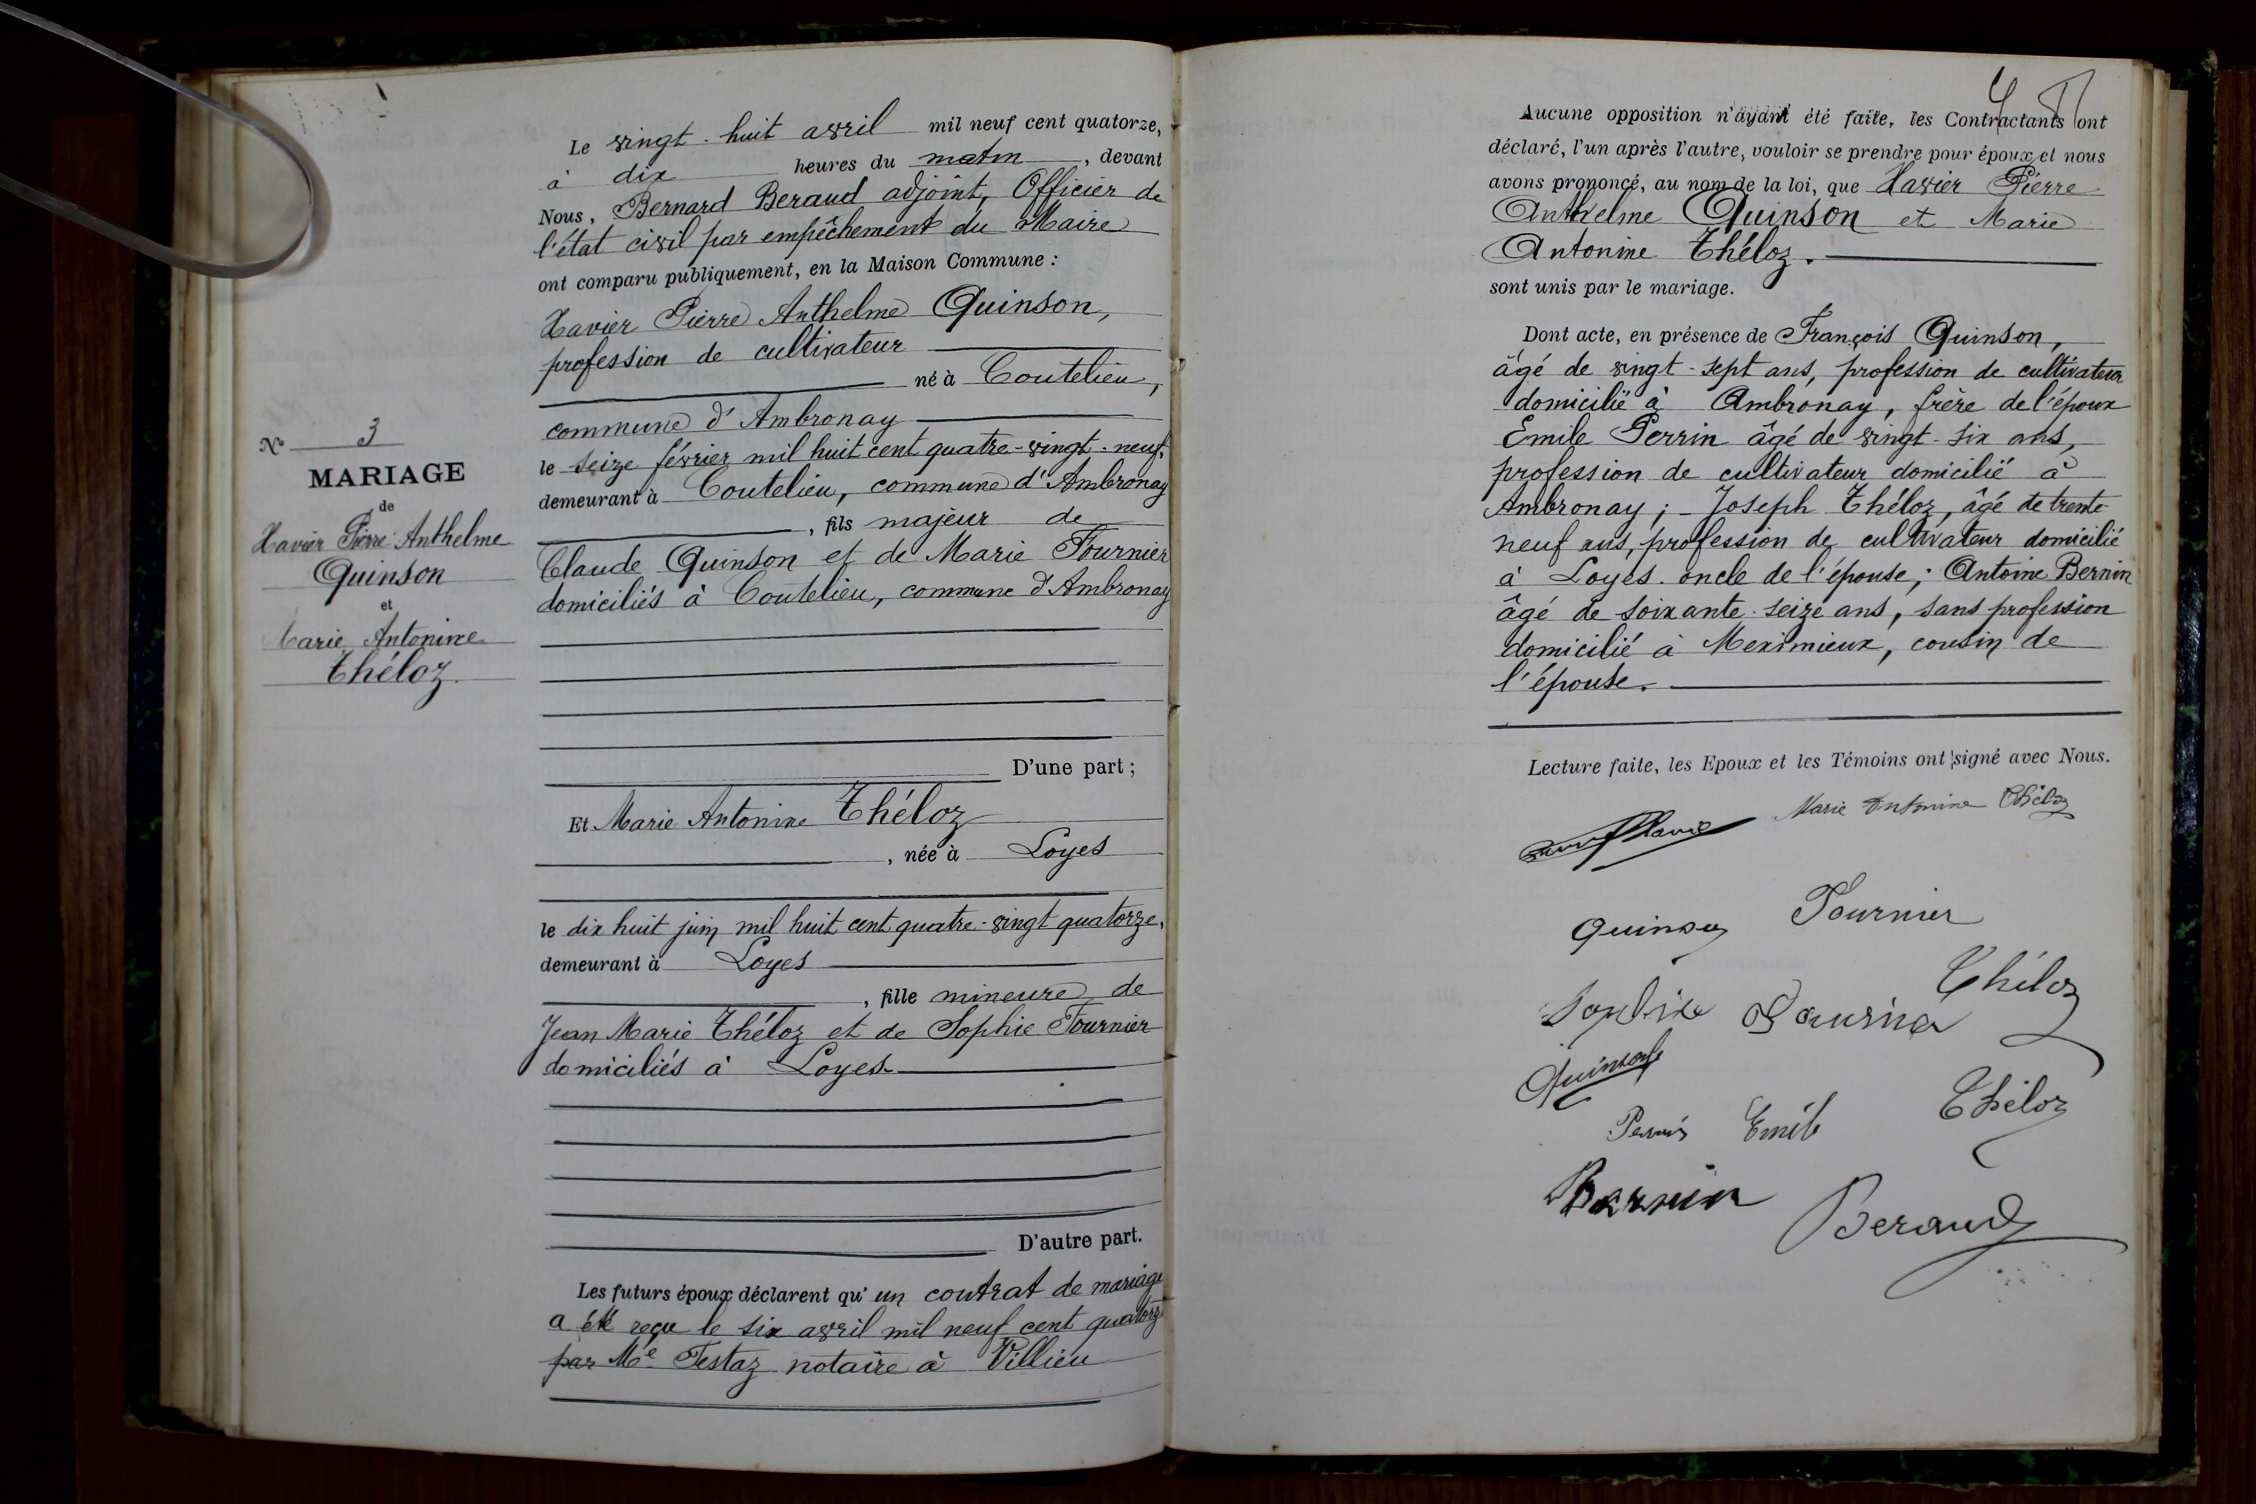 Le vingt-huit avril mil neuf cent quatorze,
à dix heures du matin, devant
Nous, Bernard Beraud adjoint, Officier de
l'état civil par empêchement du Maire
ont comparu publiquement, en la Maison Commune :
Xavier Pierre Anthelme Quinson,
profession de cultivateur
né à Coutelieu,
commune d'Ambronay
le seize février mil huit cent quatre-vingt-neuf,
demeurant à Coutelieu, commune d'Ambronay
, fils majeur de
Claude Quinson et de Marie Fournier
domiciliés à Coutelieu, commune d'Ambronay
D'une part ;
Et Marie Antonine Théloz
, née à Loyes
le dix huit juin mil huit cent quatre-vingt quatorze,
demeurant à Loyes
, fille mineure de
Jean Marie Théloz et de Sophie Fournier
domiciliés à Loyes.
D'autre part.
Les futurs époux déclarent qu'un contrat de mariage
a été reçu le six avril mil neuf cent quatorze
par Me Testaz notaire à Villieu
N° 3
MARIAGE
de
Xavier Pierre Anthelme
Quinson
et
Marie Antonine
Théloz.
Aucune opposition n'ayant été faite, les Contractants ont
déclaré, l'un après l'autre, vouloir se prendre pour époux et nous
avons prononcé, au nom de la loi, que Xavier Pierre
Anthelme Quinson et Marie
Antonine Théloz.
sont unis par le mariage.
Dont acte, en présence de François Quinson,
âgé de vingt-sept ans, profession de cultivateur
domicilié à Ambronay, frère de l'époux
Emile Perrin âgé de vingt-six ans,
profession de cultivateur domicilié à
Ambronay ; - Joseph Théloz, âgé de trente
neuf ans, profession de cultivateur domicilié
à Loyes. oncle de l'épouse ; Antoine Bernin
âgé de soixante-seize ans, sans profession
domicilié à Meximieux, cousin de
l'épouse.
Lecture faite, les Epoux et les Témoins ont signé avec Nous.
Marie Antonine Théloz
Quinson Fournier
Théloz
Sophie Fournier
Quinson
Théloz
Perrin Emile
Bernin
Beraud